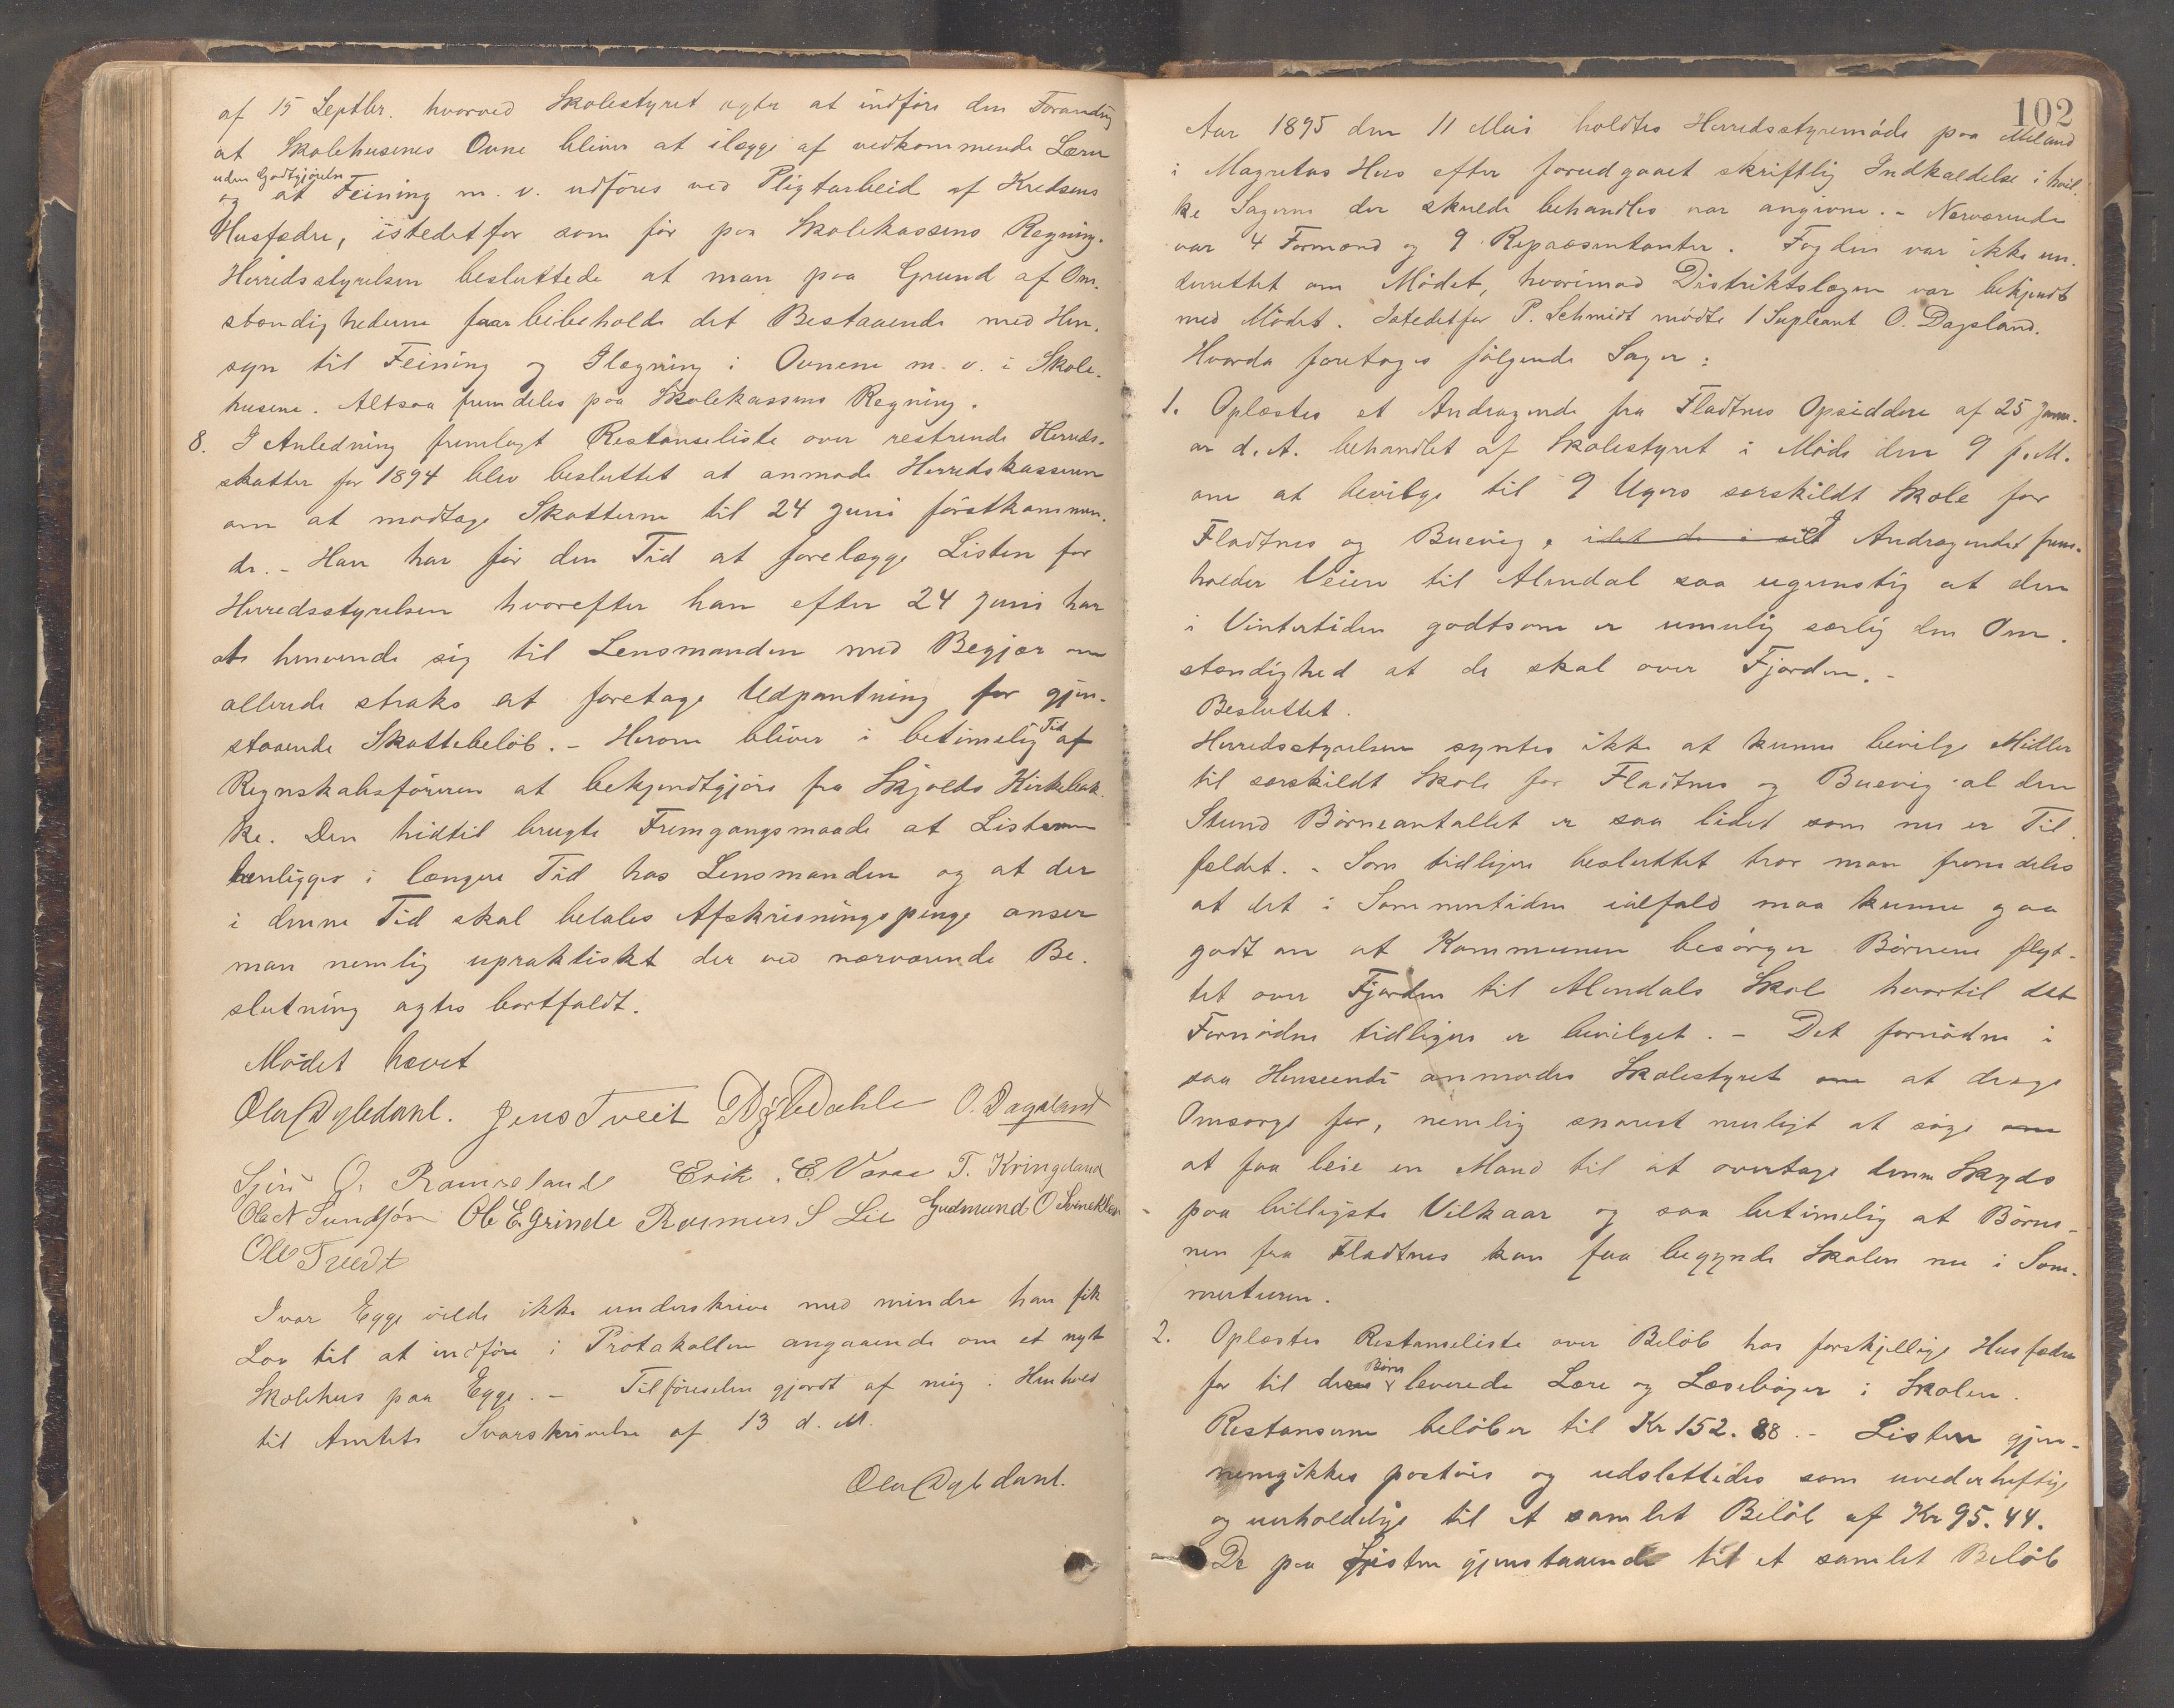 af 15 Septbr. hvorved Skolestyret agter at indføre den Forandrig
at Skolehusenes Ovne bliver at ilægge af vedkommende Lærer
uden Godtgjørelse
og at Feining m. v. udføres ved Pligtarbeid af Kredsens
Husfædre, istedetfor som før paa Skolekassens Regning.
Herredsstyrelsen besluttede at man paa Grund af Om-
stændighederne faar beibeholde det Bestaaende med Hen-
syn til Feining og Ilægning i Ovnene m. v. i Skole-
husene. Altsaa fremdeles paa Skolekassens Regning.
8. I Anledning fremlagt Restanseliste over resterende Herreds-
skatter for 1894 blev besluttet at anmode Herredskasseren
om at modtage Skatterne til 24 Juni førstkommen-
de. - Han har før den Tid at forelægge Listen for
Herredsstyrelsen hvorefter han efter 24 Juni har
at henvende sig til Lensmanden med Begjær om
allerede straks at foretage Udpantning for gjen-
staaende Skattebeløb. - Herom bliver i betimelig Tid af
Regnskabsføreren at bekjendtgjøre fra Skjolds Kirkebak-
ke. Den hidtil brugte Fremgangsmaade at Listerne
henligger i længere Tid hos Lensmanden og at der
i denne Tid skal betales Afskrivningspenge anser
man nemlig upraktiskt der ved nærværende Be-
slutning agtes bortfaldt.
Mødet hævet
Ola Dybedahl. Jens Tveit O. Dagsland
O. Ramseland Erik E. Vaaa T. Kringeland
Ole N Sundfør Ole E. Grinde Rasmus S Lie Gudmund O
Ole Tvedt
Ivar Egge vilde ikke underskrive med mindre han fik
Lov til at indføre i Protokollen angaaende om et nyt
Skolehus paa Egge. - Tilførselen gjordt af mig i Henhold
til Amtets Svarskrivelse af 13 d. M.
Ola Dybedahl.
102
Aar 1895 den 11 Mai holdtes Herredsstyremøde paa Meland
i Magretas Hus efter forudgaaet skriftlig Indkaldelse i hvil-
ke Sagerne der skulde behandles var angivne. - Nærværende
var 4 Formænd og 9 Repræsentanter. Fogden var ikke un-
derrettet om Mødet, hvorimod Distriktslægen var bekjendt
med Mødet. Istedetfor P. Schmidt mødte 1 Supleant O. Dagsland.
Hvorda foretages følgende Sager:
1. Oplæstes et Andragende fra Fladtnes Opsiddere af 25 Janu-
ar d. A. behandlet af Skolestyret i Møde den 9 f. M.
om at bevilge til 9 Ugers særskildt Skole for
Fladtnes og Buevig, idet de i sit I Andragendet frem-
holder Veien til Alendal saa ugunstig at den
i Vintertiden godtsom er umulig særlig den Om-
stændighed at de skal over Fjorden. -
Besluttet.
Herredsstyrelsen syntes ikke at kunne bevilge Midler
til særskildt Skole for Fladtnes og Buevig al den
Stund Børneantallet er saa lidet som nu er Til-
fældet. - Som tidligere besluttet tror man fremdeles
at det i Sommertiden ialfald maa kunne gaa
godt an at Kommunen besørger Børnene flyt-
tet over Fjorden til Alendals Skole hvortil det
Fornødne tidligere er bevilget. - Det fornødne i
saa Henseende anmodes Skolestyret om at drage
Omsorg for, nemlig snarest muligt at søge om
at faa leie en Mand til at overtage denne Skyds
paa billigste Vilkaar og saa betimelig at Børne-
nen fra Fladtnes kan faa begynde Skolen nu i Som-
merturen.
2. Oplæstes Restanseliste over Beløb hos forskjellige Husfædre
for til deres Børn leverede Lære og Læsebøger i Skolen.
Restanserne beløber til Kr 152.88. - Listen gjen-
nemgikkes postvis og udslettedes som uvederheftige
og uerholdelige til et samlet Beløb af Kr 95.44.
De paa Listen gjenstaaende til et samlet Beløb